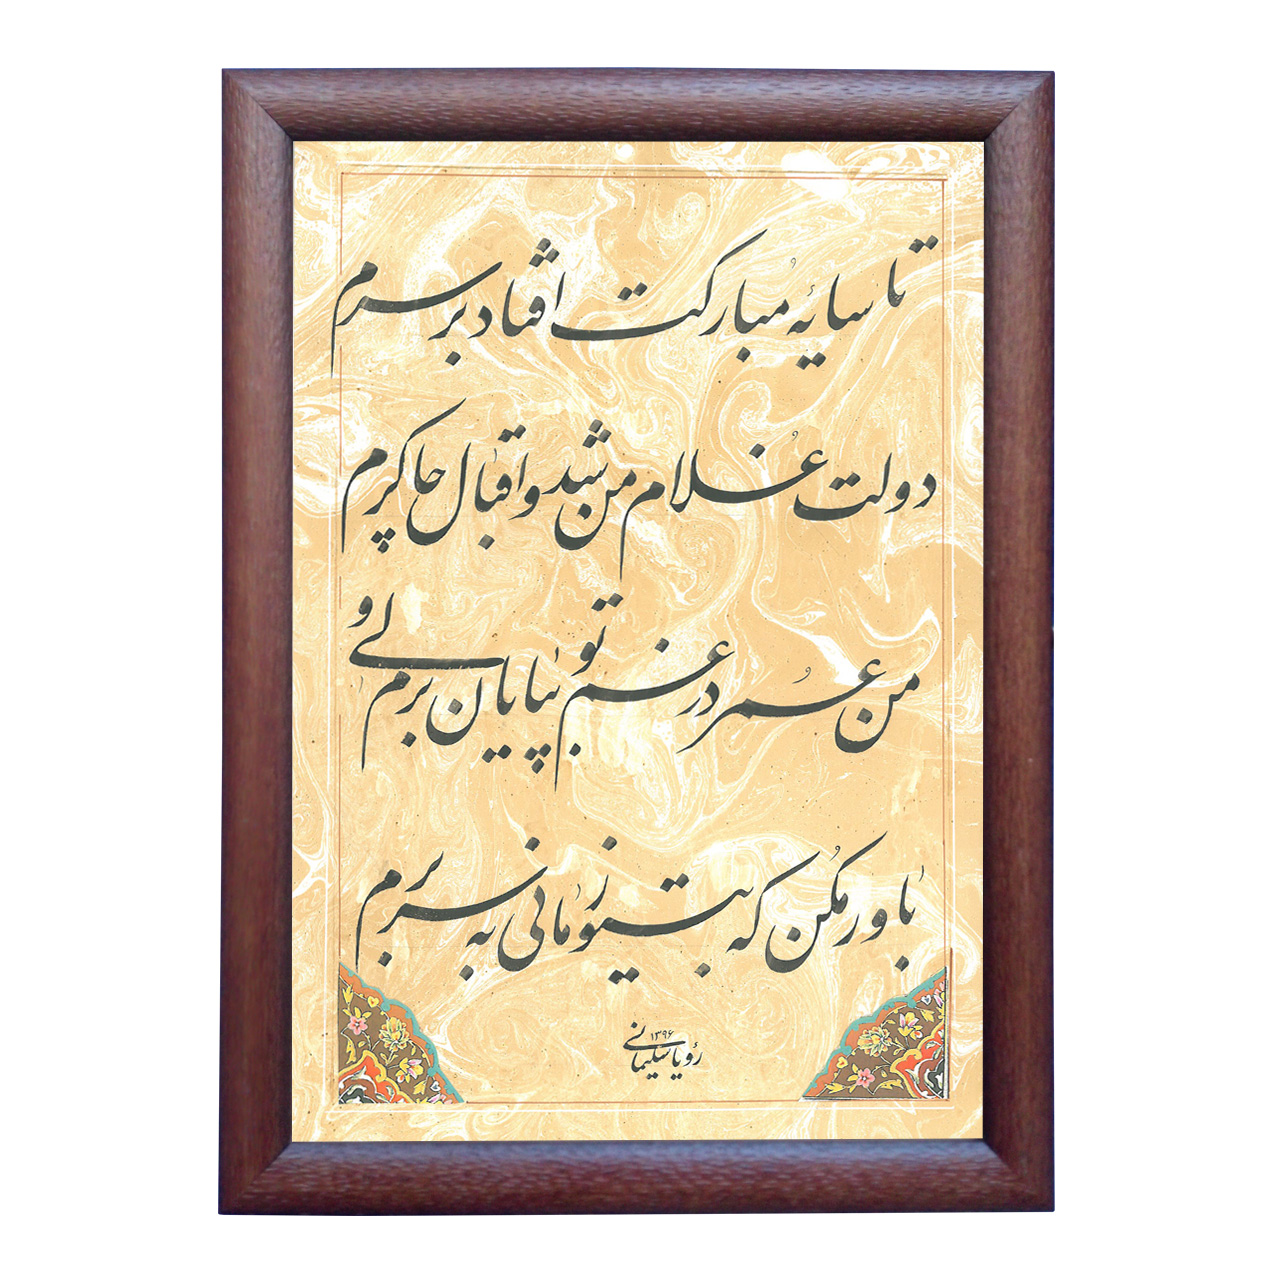 تا سایهٔ مُبارکت افتاد بر سرم
دولت غُلام من شد و اقبال چاکرم
من عُمر در غم تو بپایان برم ولی
باور مکُن که بیتو زمانی به سر برم
۱۳۹۶
رؤیا سلیمانی